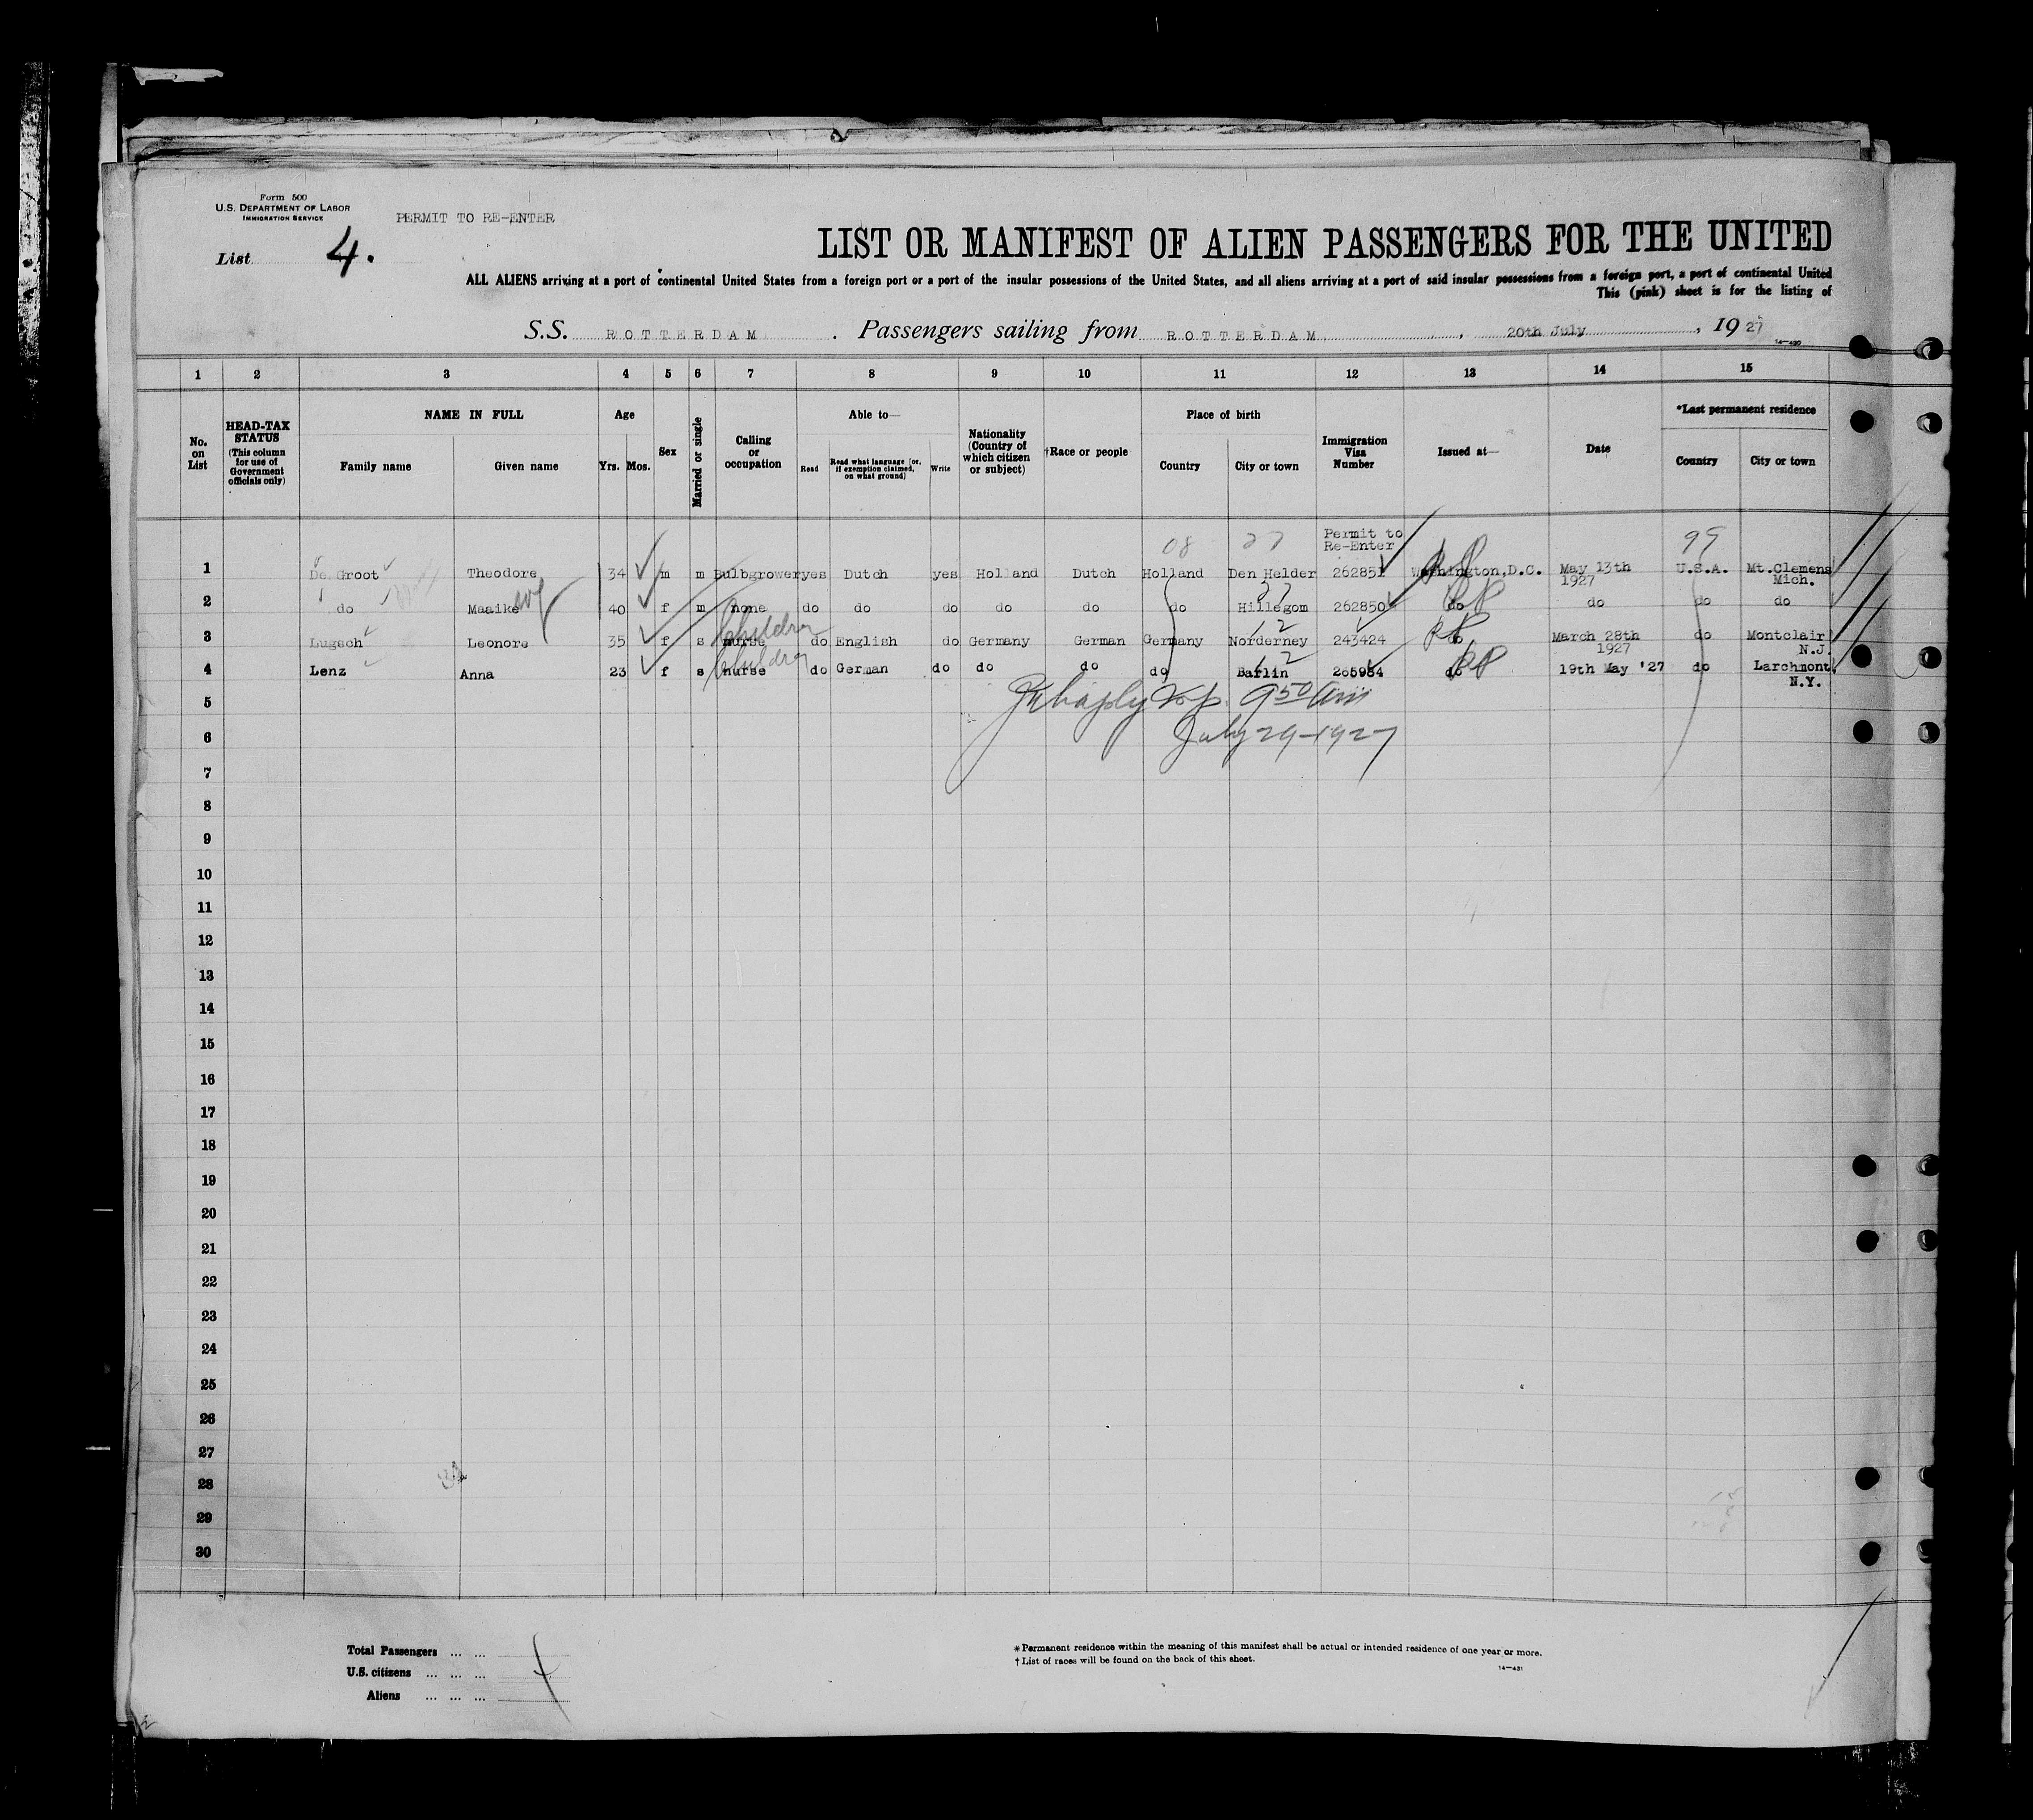 Form 500
U.S. DEPARTMENT OF LABOR
IMMIGRATION SERVICE
PERMIT TO RE-ENTER
List 4.
LIST OR MANIFEST OF ALIEN PASSENGERS FOR THE UNITED
ALL ALIENS arriving at a port of continental United States from a foreign port or a port of the insular possessions of the United States, and all aliens arriving at a port of said insular possessions from a foreign port, a port of continental United
This (pink) sheet is for the listing of
S.S. ROTTERDAM. Passengers sailing from ROTTERDAM, 20th July, 1927
14-430
1 2 3 4 5 6 7 8 9 10 11 12 13 14 15
No. on List
HEAD-TAX STATUS (This column for use of Government officials only)
NAME IN FULL
Family name Given name
Age
Yrs. Mos.
Sex
Married or single
Calling or occupation
Able to—
Read Read what language (or, if exemption claimed, on what ground) Write
Nationality (Country of which citizen or subject)
†Race or people
Place of birth
Country City or town
Immigration Visa Number
Issued at—
Date
*Last permanent residence
Country City or town
08 27 Permit to Re-Enter 99
1 De Groot Theodore 34 m m Bulbgrower yes Dutch yes Holland Dutch Holland Den Helder 262851 Washington,D.C. May 13th 1927 U.S.A. Mt.Clemens Mich.
2 do Maaike 40 f m none do do do do do do Hillegom 262850 do do do do
3 Lugsch Leonore 35 f s nurse children do English do Germany German Germany Norderney 12 243424 do March 28th 1927 do Montclair N.J.
4 Lenz Anna 23 f s nurse children do German do do do do Barlin 12 265954 do 19th May '27 do Larchmont. N.Y.
5
July 29-1927
6
7
8
9
10
11
12
13
14
15
16
17
18
19
20
21
22
23
24
25
26
27
28
29
30
Total Passengers ... ...
U.S. citizens ... ... ...
Aliens ... ... ...
* Permanent residence within the meaning of this manifest shall be actual or intended residence of one year or more.
† List of races will be found on the back of this sheet.
14-431